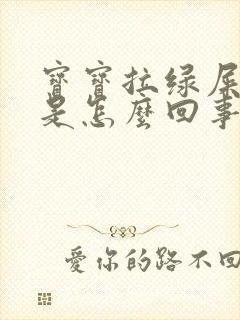 寶寶拉绿屎
是怎麼回事
愛你的路不回